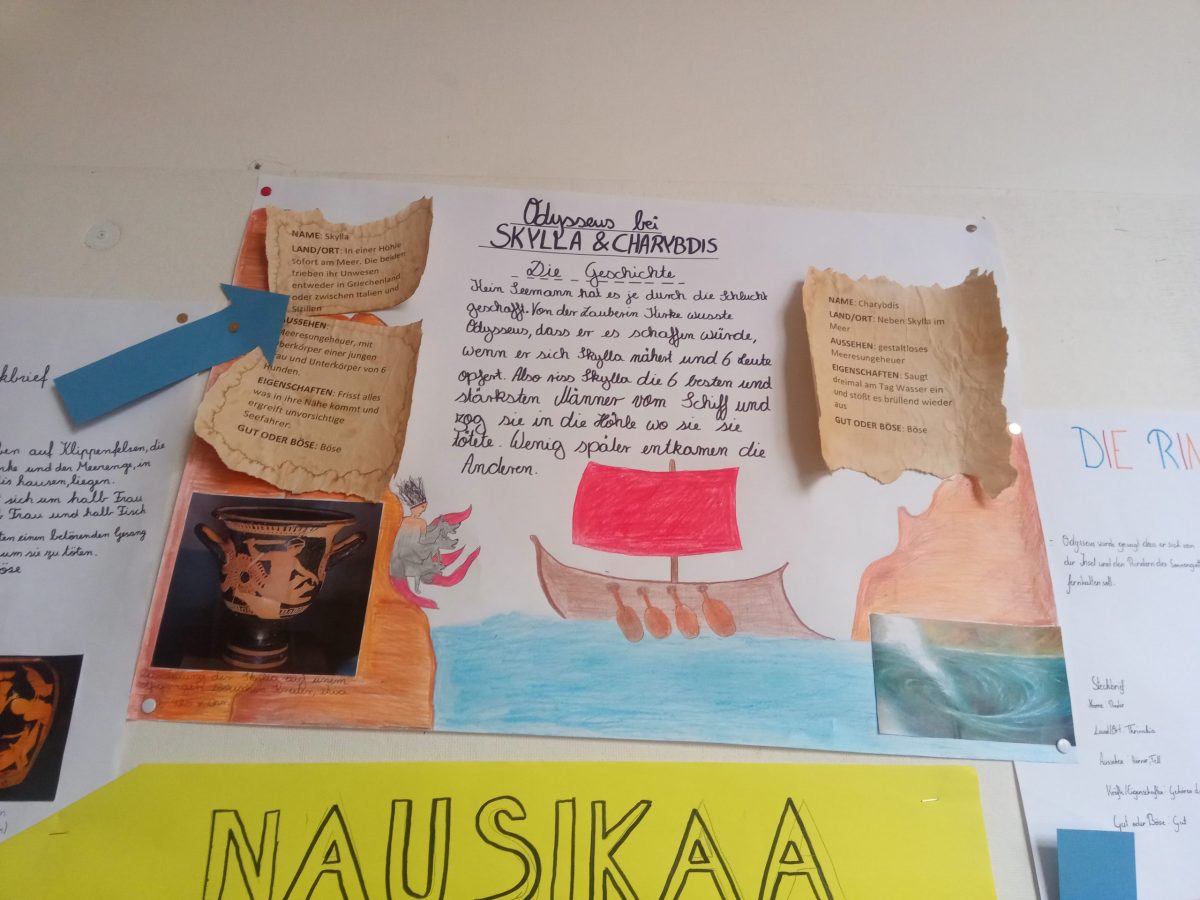 Odysseus bei
SKYLLA & CHARYBDIS
Die Geschichte
Kein Seemann hat es je durch die Schlucht
geschafft. Von der Zauberin Kirke wusste
Odysseus, dass er es schaffen würde,
wenn er sich Skylla nähert und 6 Leute
opfert. Also riss Skylla die 6 besten und
stärksten Männer vom Schiff und
zog sie in die Höhle wo sie sie
tötete. Wenig später entkamen die
Anderen.
NAME: Skylla
LAND/ORT: In einer Höhle
sofort am Meer. Die beiden
trieben ihr Unwesen
entweder in Griechenland
oder zwischen Italien und
Sizilien
AUSSEHEN:
Meeresungeheuer, mit
Oberkörper einer jungen
Frau und Unterkörper von 6
Hunden.
EIGENSCHAFTEN: Frisst alles
was in ihre Nähe kommt und
ergreift unvorsichtige
Seefahrer.
GUT ODER BÖSE: Böse
NAME: Charybdis
LAND/ORT: Neben Skylla im
Meer
AUSSEHEN: gestaltloses
Meeresungeheuer
EIGENSCHAFTEN: Saugt
dreimal am Tag Wasser ein
und stößt es brüllend wieder
aus
GUT ODER BÖSE: Böse
der Skylla auf einem
kbrief
ben auf Klippenfelsen, die
nke und der Meerenge, in
is hausen, liegen.
sich um halb Frau
b Frau und halb Fisch
ten einen betörenden Gesang
um sie zu töten.
öse
DIE RIN
- Odysseus wurde gesagt dass er sich von
der Insel und den Rindern des
fernhalten soll.
Steckbrief
Name: Rinder
Land/Ort: Thrinakia
Aussehen: Hörner, Fell
Kräfte/Eigenschaften: Gehören d
Gut oder Böse: Gut
NAUSIKAA